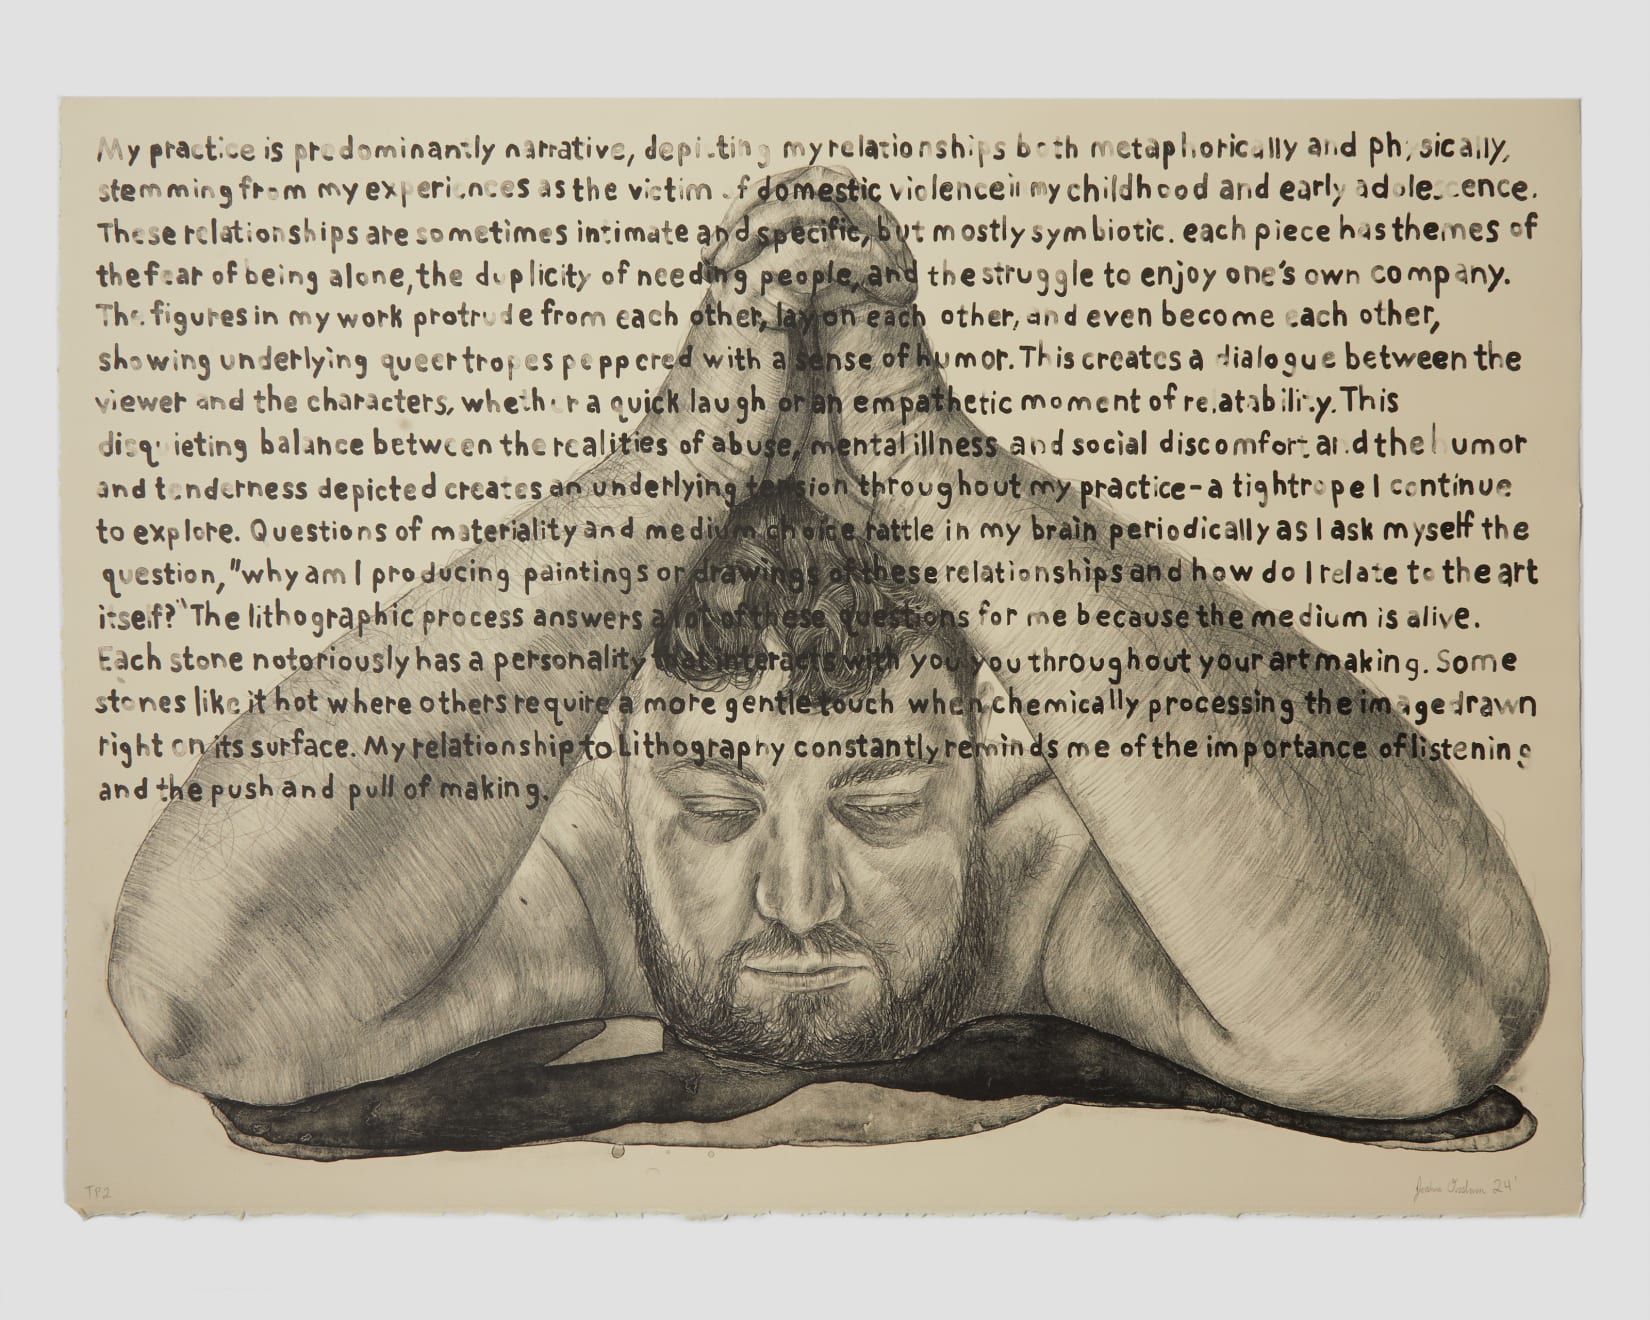 My practice is predominantly narrative, depicting my relationships both metaphorically and physically,
stemming from my experiences as the victim of domestic violence in my childhood and early adolescence.
These relationships are sometimes intimate and specific, but mostly symbiotic. each piece has themes of
the fear of being alone, the duplicity of needing people, and the struggle to enjoy one's own company.
The figures in my work protrude from each other, lay on each other, and even become each other,
showing underlying queer tropes peppered with a sense of humor. This creates a dialogue between the
viewer and the characters, whether a quick laugh or an empathetic moment of relatability. This
disquieting balance between the realities of abuse, mental illness and social discomfort and the humor
and tenderness depicted creates an underlying tension throughout my practice - a tightrope I continue
to explore. Questions of materiality and medium choice rattle in my brain periodically as I ask myself the
question, "why am I producing paintings or drawings of these relationships and how do I relate to the art
itself?" The lithographic process answers a lot of these questions for me because the medium is alive.
Each stone notoriously has a personality that interacts with you you throughout your art making. Some
stones like it hot where others require a more gentle touch when chemically processing the image drawn
right on its surface. My relationship to Lithography constantly reminds me of the importance of listening
and the push and pull of making.
TP2
Joshua 24'